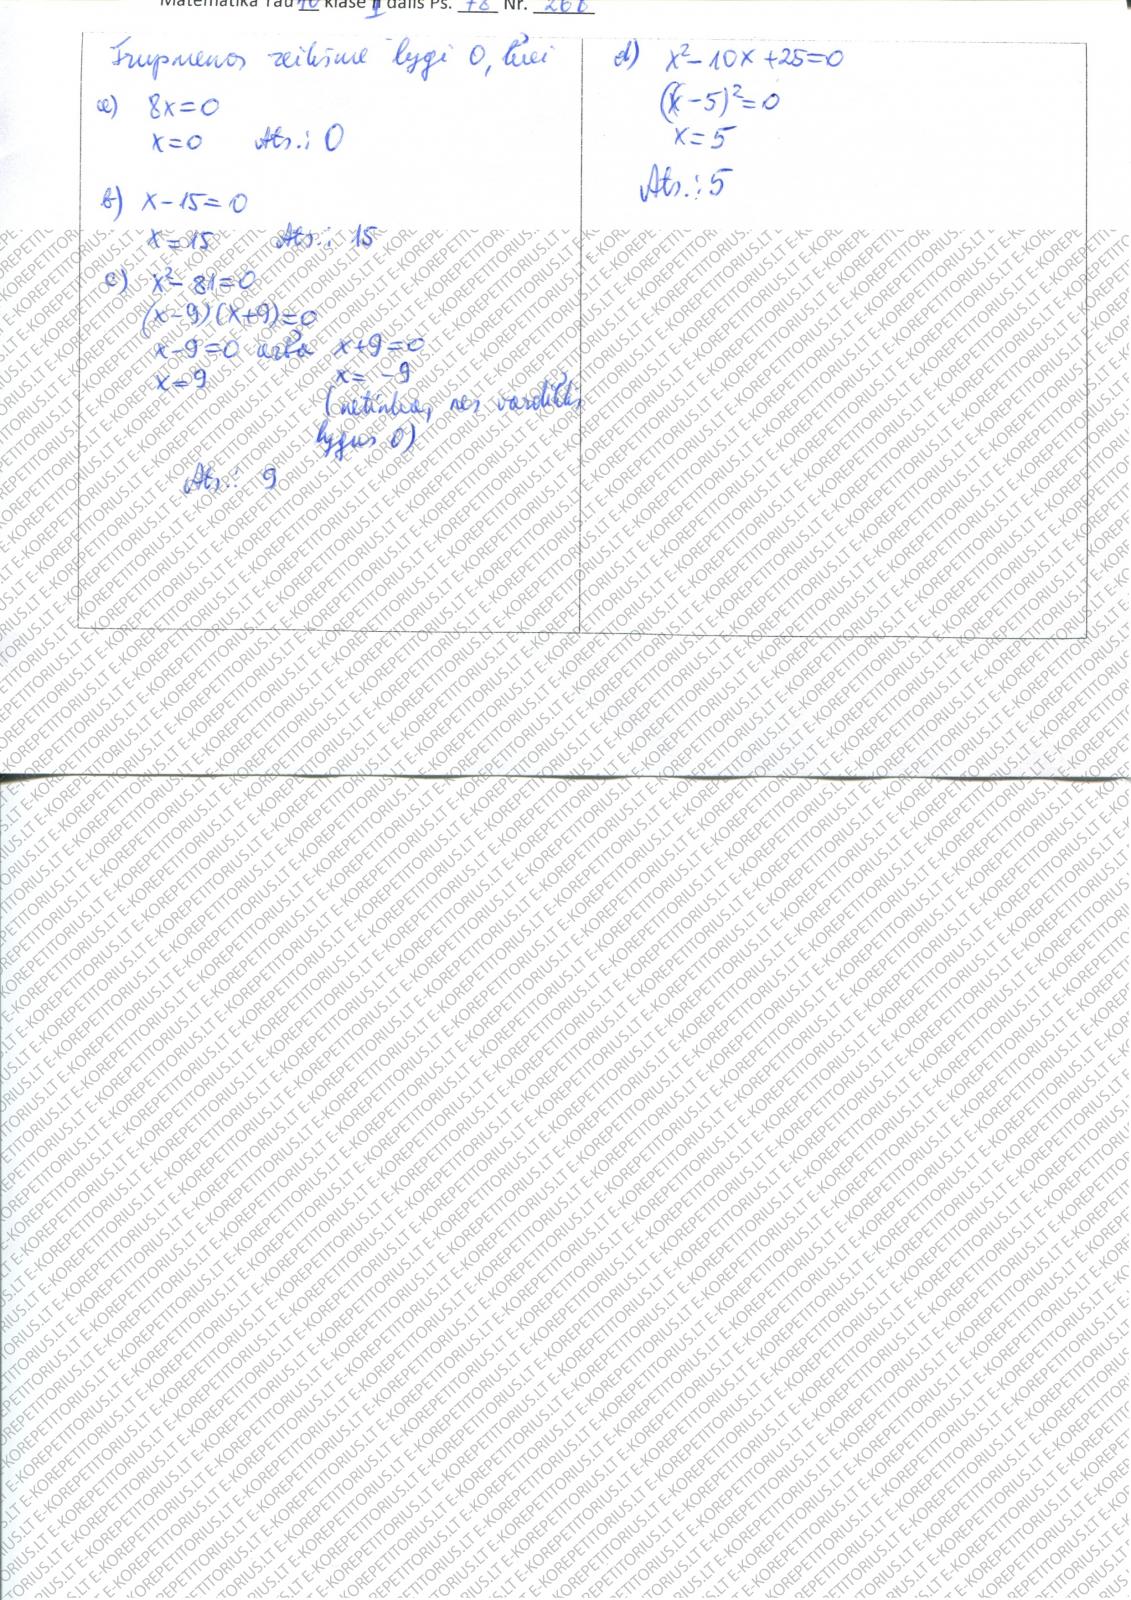 Matematika Tau 10 klasė II dalis Ps. 78 Nr. 266
Trupmenos reikšmė lygi 0, kai
a) 8x=0
x=0 Ats.: 0
b) x-15=0
x=15 Ats.: 15
c) x²-81=0
(x-9)(x+9)=0
x-9=0 arba x+9=0
x=9 x=-9
(netinka, nes vardiklis
lygus 0)
Ats.: 9
d) x²-10x+25=0
(x-5)²=0
x=5
Ats.: 5
E-KOREPETITORIUS.LT